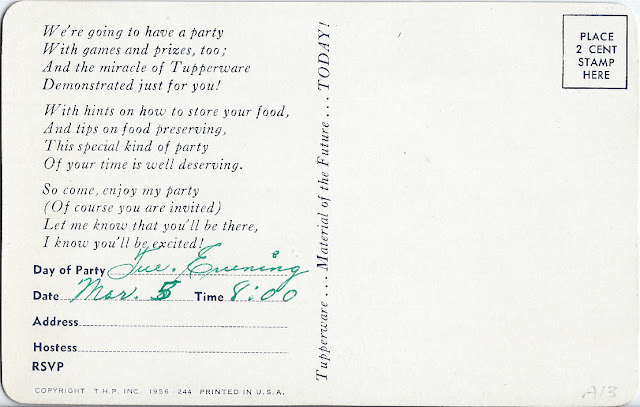 We're going to have a party
With games and prizes, too;
And the miracle of Tupperware
Demonstrated just for you!
With hints on how to store your food,
And tips on food preserving,
This special kind of party
Of your time is well deserving.
So come, enjoy my party
(Of course you are invited)
Let me know that you'll be there,
I know you'll be excited!
Day of Party Tue. Evening
Date Mar. 5 Time 8:00
Address
Hostess
RSVP
COPYRIGHT T.H.P. INC. 1956 - 244 PRINTED IN U.S.A.
Tupperware ... Material of the Future ... TODAY!
PLACE
2 CENT
STAMP
HERE
A13